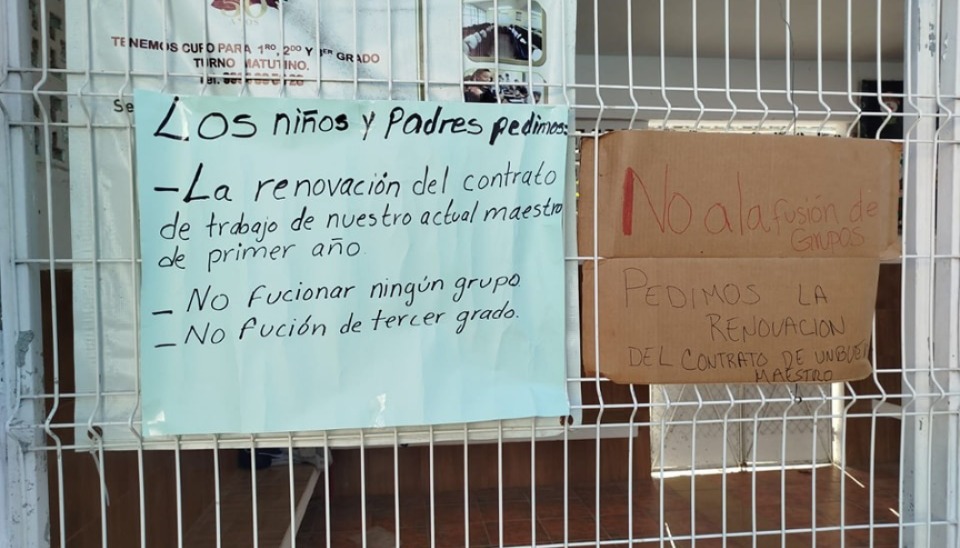 TENEMOS CUPO PARA 1RO, 2DO Y 3ER GRADO
TURNO MATUTINO.
Tel.
Se
Los niños y Padres pedimos:
- La renovación del contrato
de trabajo de nuestro actual maestro
de primer año.
- No fucionar ningún grupo
- No fución de tercer grado.
No a la fusión de
Grupos
PEDIMOS LA
RENOVACION
DEL CONTRATO DE UN BUEN
MAESTRO